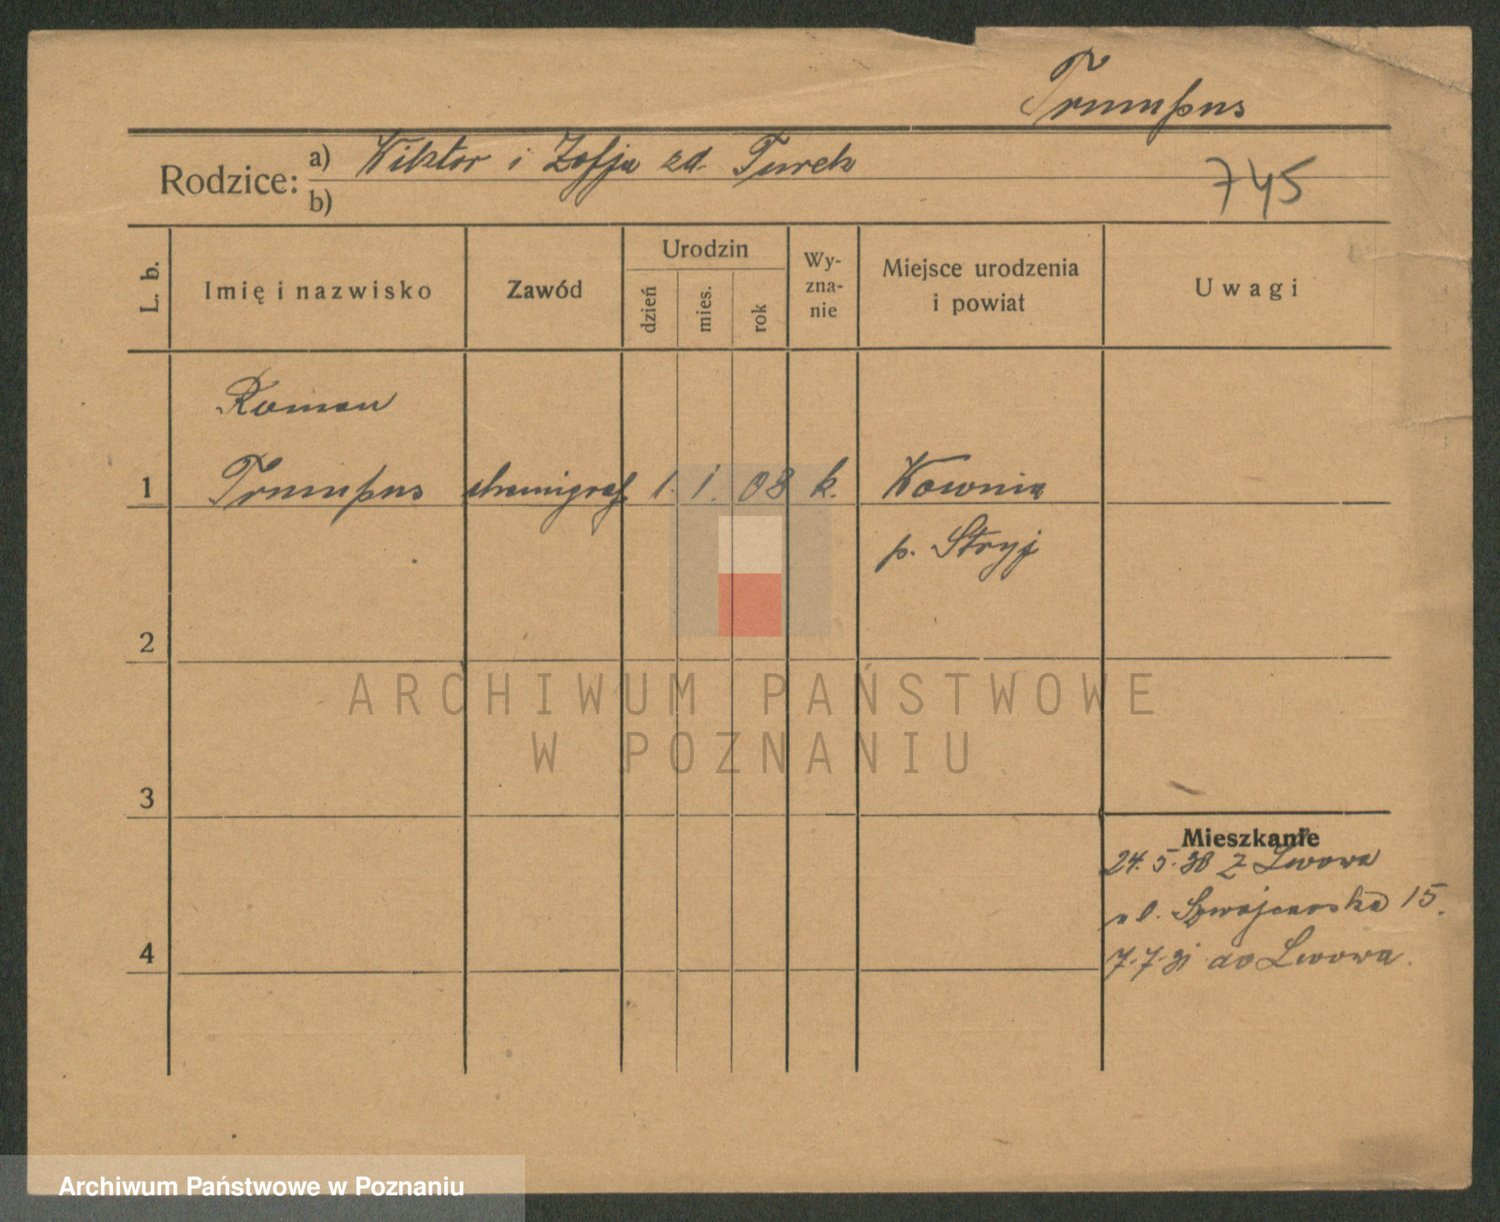 Trumpus
Rodzice: a) Wiktor i Zofja zd. Turek
b)
745
L. b.
Imię i nazwisko
Zawód
Urodzin
dzień
mies.
rok
Wy-
zna-
nie
Miejsce urodzenia
i powiat
Uwagi
Roman
1 Trumpus chemigraf 1. 1. 08 k. Kownia
p. Stryj
2
3
4
Mieszkanie
24. 5. 30 z Lwowa
ul. Szwajcarska 15.
7. 7. 31 do Lwowa.
ARCHIWUM PAŃSTWOWE
W POZNANIU
Archiwum Państwowe w Poznaniu